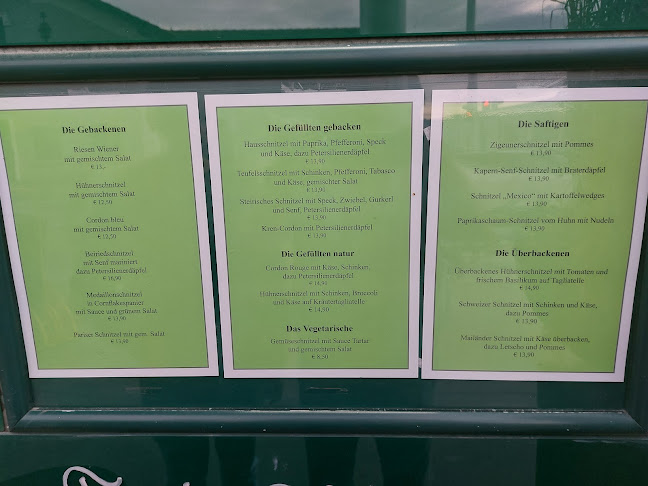 Die Gebackenen
Riesen Wiener
mit gemischtem Salat
Hühnerschnitzel
mit gemischtem Salat
€ 12,50
Cordon bleu
mit gemischtem Salat
€ 12,50
Beiriedschnitzel
mit Senf mariniert
dazu Petersilienerdäpfel
€ 16,90
Medaillonschnitzel
in Cornflakespanier
mit Sauce und grünem Salat
€ 13,90
Pariser Schnitzel mit gem. Salat
€ 13,90
Die Gefüllten gebacken
Hausschnitzel mit Paprika, Pfefferoni, Speck
und Käse, dazu Petersilienerdäpfel
€ 13,90
Teufelsschnitzel mit Schinken, Pfefferoni, Tabasco
und Käse, gemischter Salat
€ 13,90
Steirisches Schnitzel mit Speck, Zwiebel, Gurkerl
und Senf, Petersilienerdäpfel
€ 13,90
Kren-Cordon mit Petersilienerdäpfel
€ 13,90
Die Gefüllten natur
Cordon Rouge mit Käse, Schinken,
dazu Petersilienerdäpfel
€ 14,90
Hühnerschnitzel mit Schinken, Broccoli
und Käse auf Kräutertagliatelle
€ 14,90
Das Vegetarische
Gemüseschnitzel mit Sauce Tartar
und gemischtem Salat
€ 8,50
Die Saftigen
Zigeunerschnitzel mit Pommes
€ 13,90
Kapern-Senf-Schnitzel mit Braterdäpfel
€ 13,90
Schnitzel „Mexico“ mit Kartoffelwedges
€ 13,90
Paprikaschaum-Schnitzel vom Huhn mit Nudeln
€ 13,90
Die Überbackenen
Überbackenes Hühnerschnitzel mit Tomaten und
frischem Basilikum auf Tagliatelle
€ 14,90
Schweizer Schnitzel mit Schinken und Käse,
dazu Pommes
€ 13,90
Mailänder Schnitzel mit Käse überbacken,
dazu Letscho und Pommes
€ 13,90